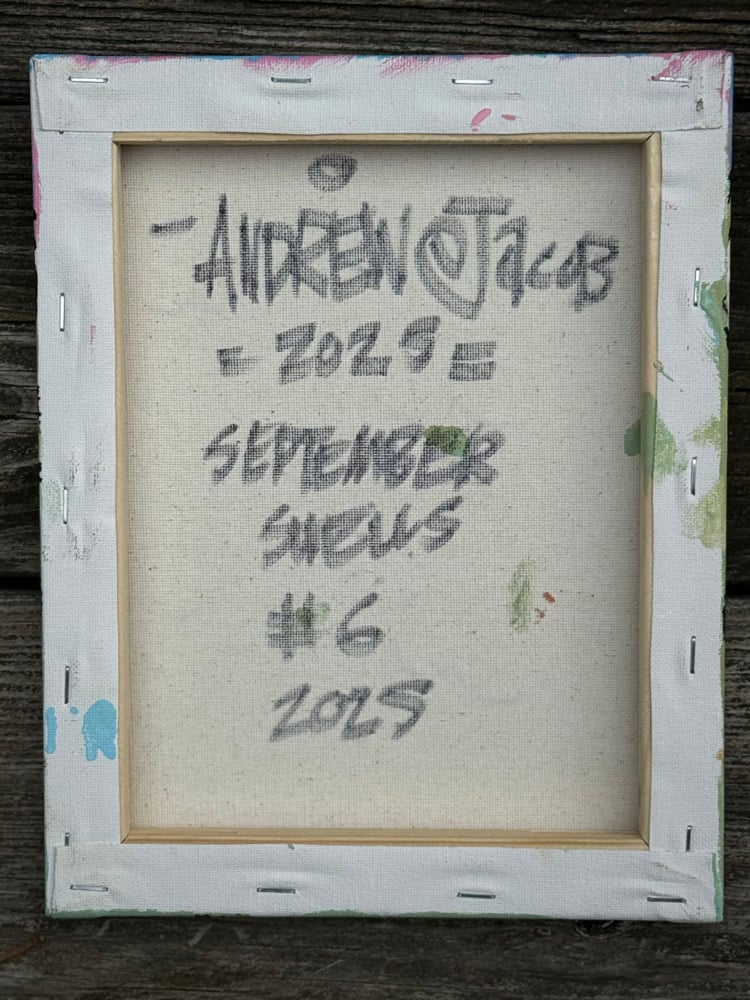 - ANDREW @ JacoB
= 2025 =
SEPTEMBER
SHELLS
#6
2025